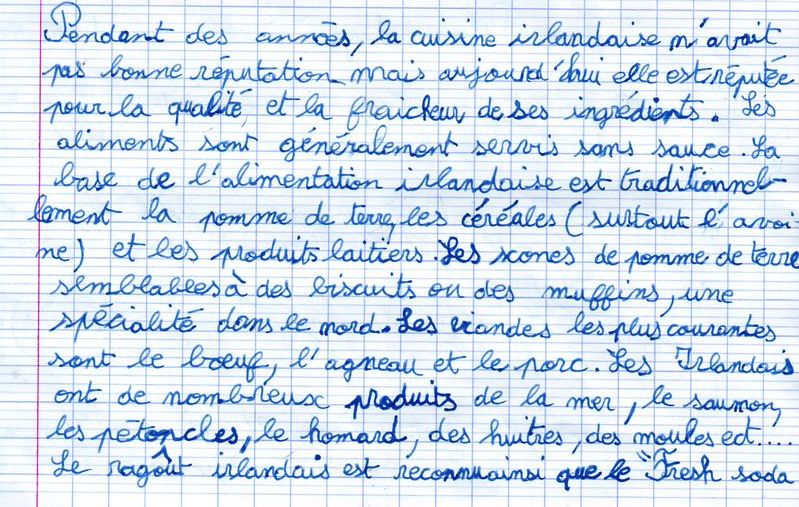 Pendant des années, la cuisine irlandaise n'avait
pas bonne réputation mais aujourd'hui elle est réputée
pour la qualité et la fraicheur de ses ingrédients. Les
aliments sont généralement servis sans sauce. La
base de l'alimentation irlandaise est traditionnel-
lement la pomme de terre, les céréales (surtout l'avoi
ne) et les produits laitiers. Les scones de pomme de terre
semblables à des biscuits ou des muffins, une
spécialité dans le nord. Les viandes les plus courantes
sont le boeuf, l'agneau et le porc. Les Irlandais
ont de nombreux produits de la mer, le saumon,
les pétoncles, le homard, des huitres, des moules ect....
Le ragoût irlandais est reconnu ainsi que le "Fresh soda